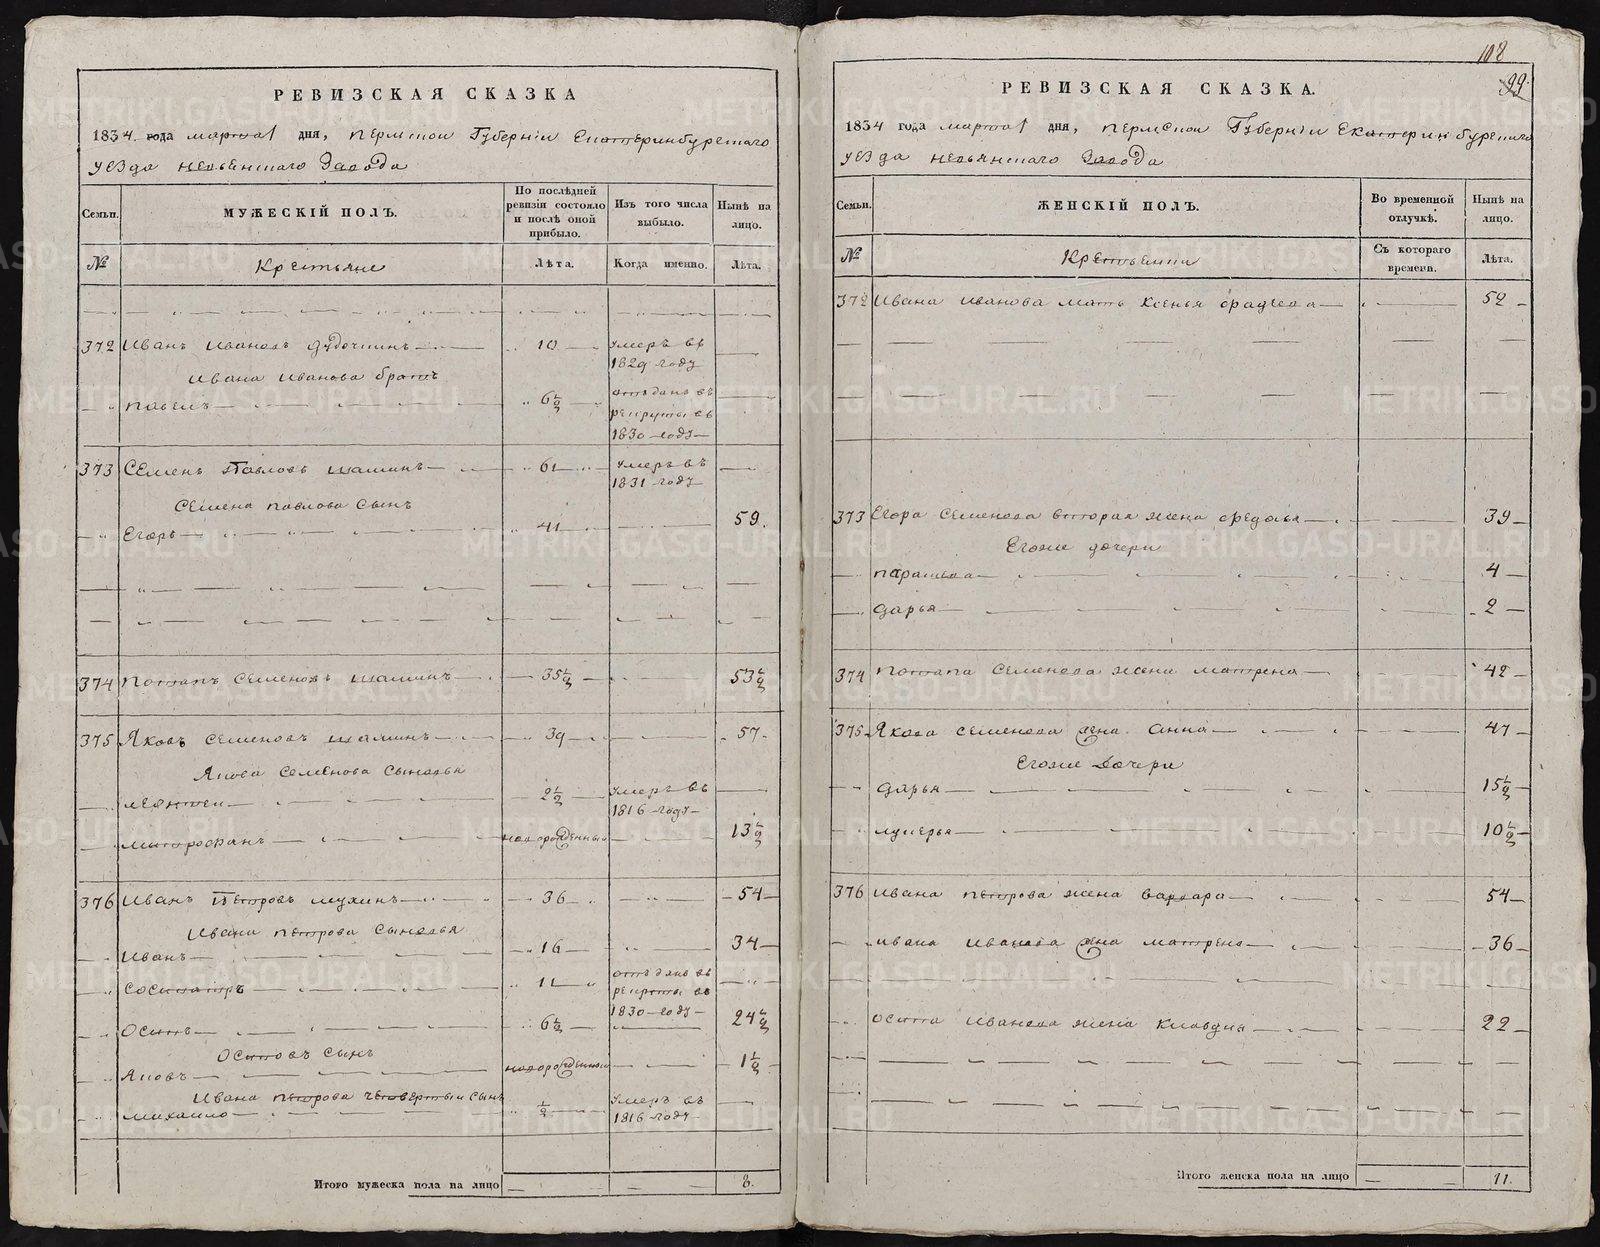 РЕВИЗСКАЯ СКАЗКА
1834. года марта 1 дня, пермской Губерніи Екатеринбургскаго
уезда невьянскаго Завода
Семьи.
МУЖЕСКІЙ ПОЛЪ.
По послѣдней ревизіи состояло и послѣ оной прибыло.
Изъ того числа выбыло.
Нынѣ на лицо.
№
Крестьяне
Лѣта.
Когда именно.
Лѣта.
372 Иванъ Ивановъ 10 умеръ въ 1829 году
Ивана Иванова братъ
павелъ 6½ отъданъ въ рекруты въ 1830 году
373 Семенъ Павловъ шаминъ 61 умеръ въ 1831 году
Семена павлова сынъ
Егоръ 41 59.
374 потапъ семеновъ шаминъ 35½ 53½
375 Яковъ семеновъ шаминъ 39 57
Якова семенова сыновья
леонтеи 2½ умеръ въ 1816 году
митрофанъ новорожденный 13½
376 Иванъ Петровъ мухинъ 36 54
Ивана петрова сыновья
Иванъ 16 34
сосипатръ 11 отъданъ въ рекруты въ 1830 году
осипъ 6½ 24½
осиповъ сынъ
Яковъ новорожденный 1½
Ивана петрова четвертыи сынъ
михаило ½ умеръ въ 1816 году
Итого мужеска пола на лицо 8.
108
99
РЕВИЗСКАЯ СКАЗКА.
1834 года марта 1 дня, пермской Губерніи Екатеринбургскаго
уезда невьянскаго Завода
Семьи.
ЖЕНСКІЙ ПОЛЪ.
Во временной отлучкѣ.
Нынѣ на лицо.
№
Крестьянки
Съ котораго времени.
Лѣта.
372 Ивана иванова мать Ксенья 52
373 Егора семенова вторая жена федосья 39
Егоже дочери
парасковья 4
дарья 2
374 потапа семенова жена матрена 42
375 Якова семенова жена Анна 47
Егоже дочери
дарья 15½
лукерья 10½
376 ивана петрова жена варвара 54
ивана иванова жена матрена 36
осипа иванова жена клавдия 22
Итого женска пола на лицо 11.
METRIKI.GASO-URAL.RU